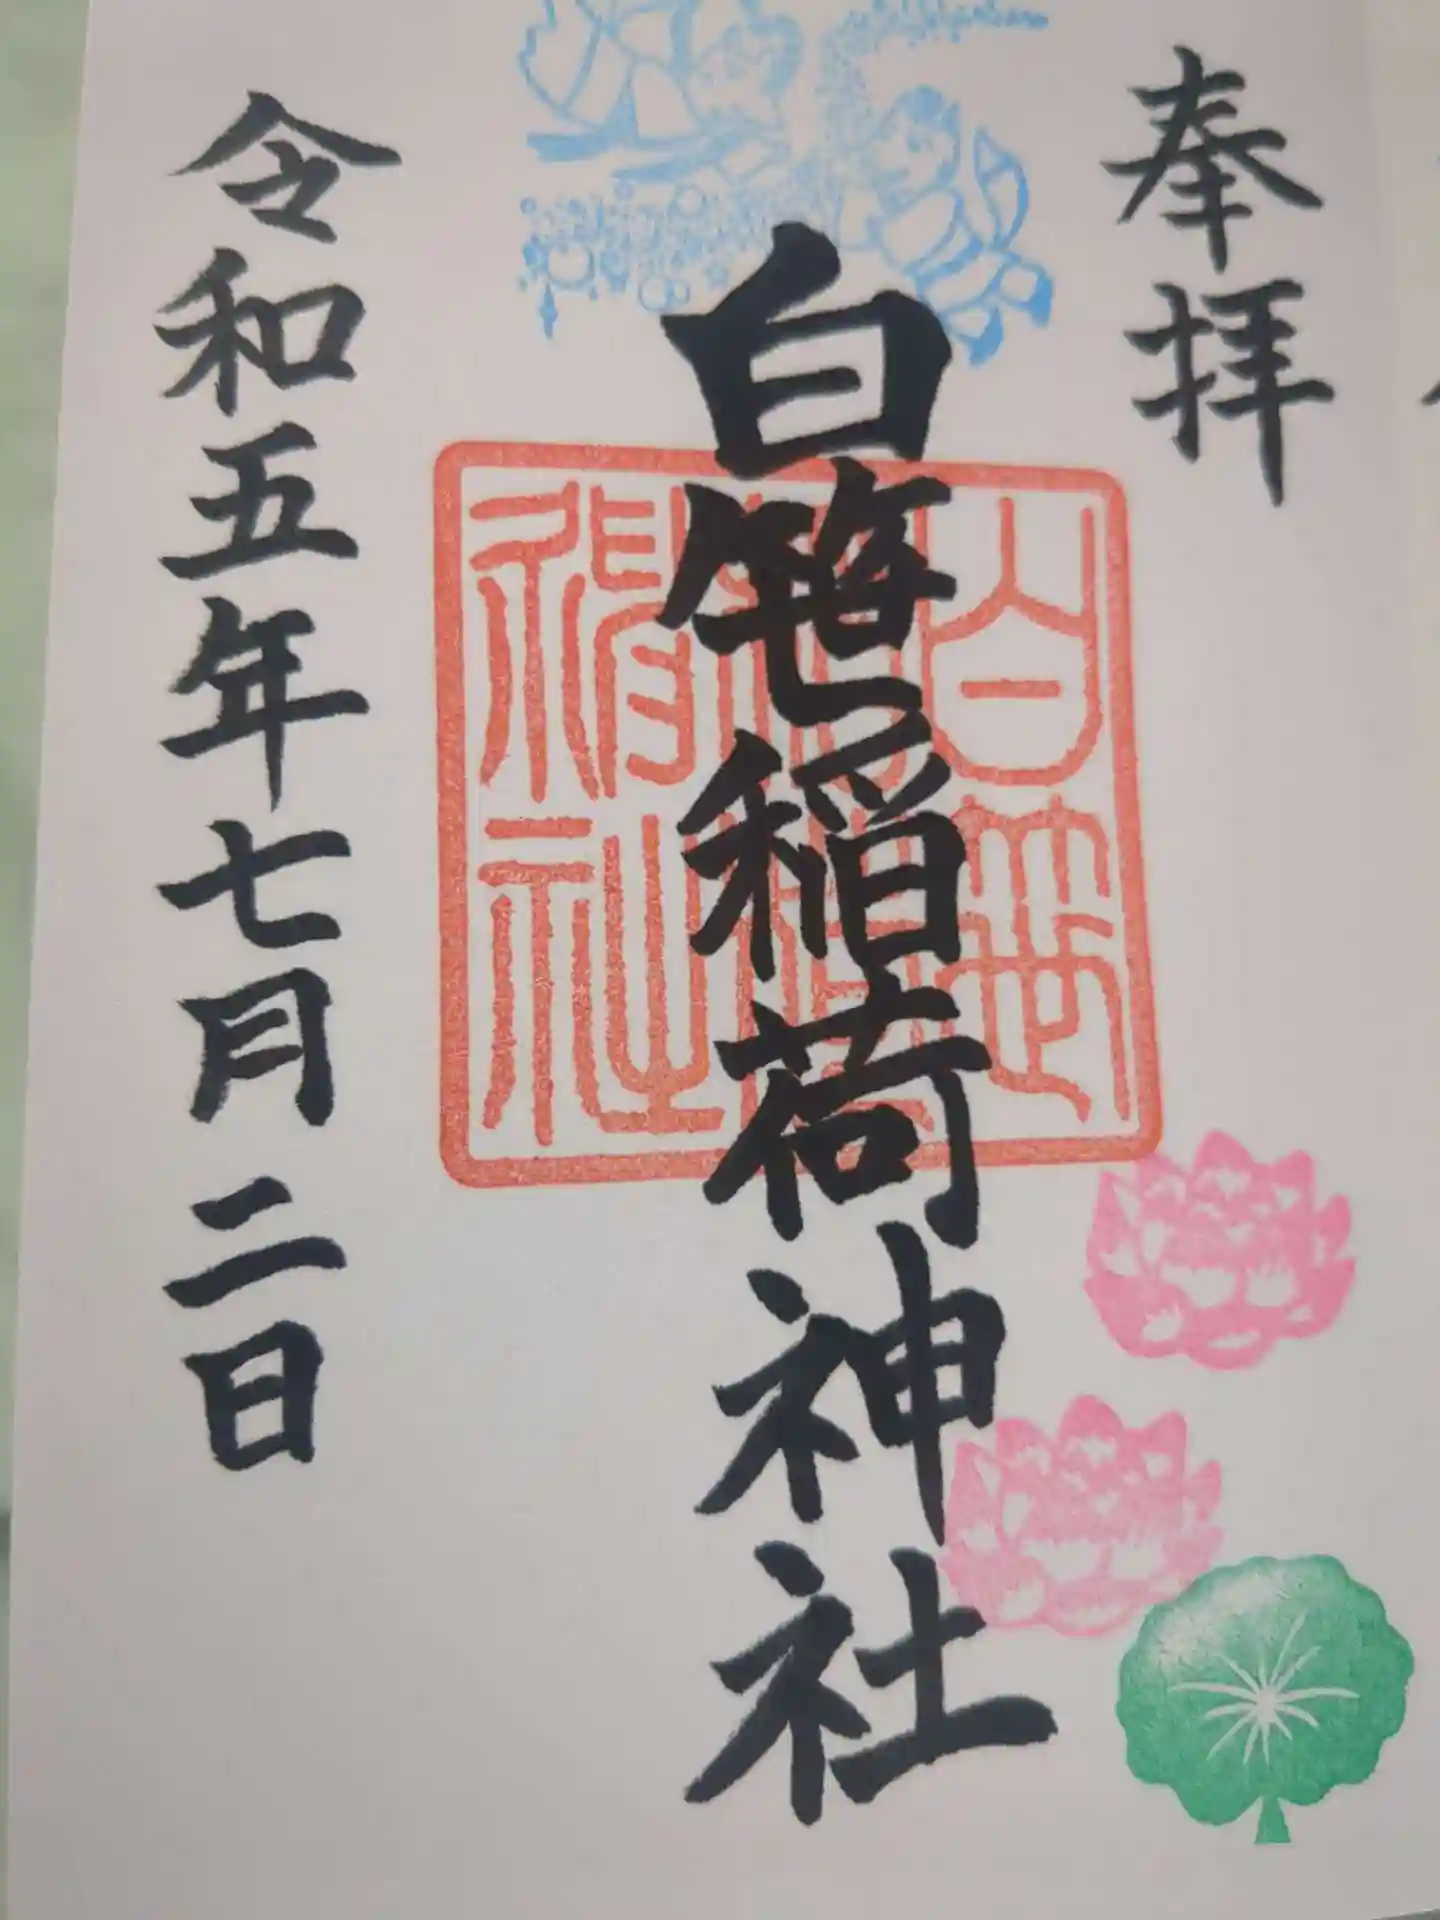 奉拝
白笹稲荷神社
白笹稲荷神社
令和五年七月二日